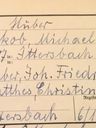 Huber
kob, Michael
7. Ittersbach
ber, Joh. Friedr
atthes Christin
tersbach
6/1